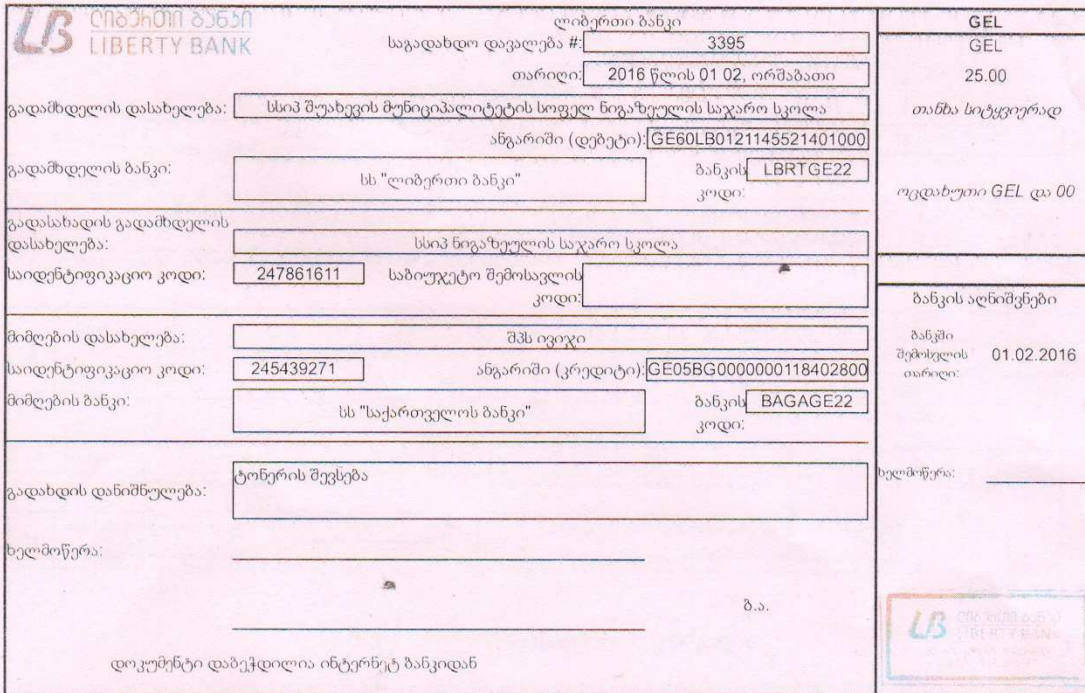 ლიბერთი ბანკი
LIBERTY BANK
ლიბერთი ბანკი
საგადახდო დავალება #: 3395
თარიღი: 2016 წლის 01 02, ორშაბათი
გადამხდელის დასახელება: სსიპ შუახევის მუნიციპალიტეტის სოფელ ნიგაზეულის საჯარო სკოლა
ანგარიში (დებეტი): GE60LB0121145521401000
გადამხდელის ბანკი: სს "ლიბერთი ბანკი" ბანკის კოდი: LBRTGE22
გადასახადის გადამხდელის
დასახელება: სსიპ ნიგაზეულის საჯარო სკოლა
საიდენტიფიკაციო კოდი: 247861611 საბიუჯეტო შემოსავლის
კოდი:
მიმღების დასახელება: შპს ივოჯი
საიდენტიფიკაციო კოდი: 245439271 ანგარიში (კრედიტი): GE05BG0000000118402800
მიმღების ბანკი: სს "საქართველოს ბანკი" ბანკის კოდი: BAGAGE22
გადახდის დანიშნულება: ტონერის შევსება
ხელმოწერა:
ბ.ა.
დოკუმენტი დაბეჭდილია ინტერნეტ ბანკიდან
GEL
GEL
25.00
თანხა სიტყვიერად
ოცდახუთი GEL და 00
ბანკის აღნიშვნები
ბანკში
შემოსვლის 01.02.2016
თარიღი:
ხელმოწერა:
LIBERTY BANK